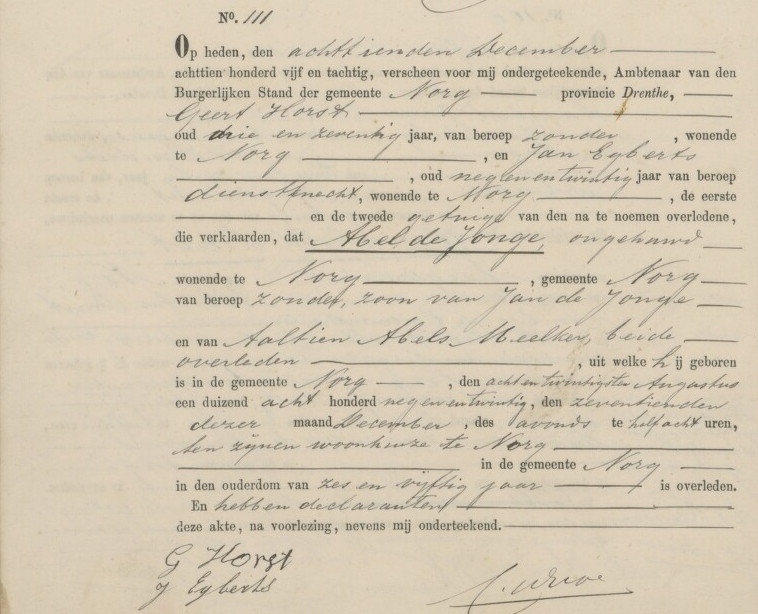 No. 111
Op heden, den achttienden December
achttien honderd vijf en tachtig, verscheen voor mij ondergeteekende, Ambtenaar van den
Burgerlijken Stand der gemeente Norg provincie Drenthe,
Geert Horst
oud drie en zeventig jaar, van beroep zonder, wonende
te Norg, en Jan Egberts
, oud negenentwintig jaar van beroep
dienstknecht, wonende te Norg, de eerste
en de tweede getuige van den na te noemen overledene,
die verklaarden, dat Abel de Jonge, ongehuwd
wonende te Norg, gemeente Norg
van beroep zonder, zoon van Jan de Jonge
en van Aaltien Abels Meelker, beide
overleden, uit welke hij geboren
is in de gemeente Norg, den achtentwintigsten Augustus
een duizend acht honderd negenentwintig, den zeventienden
dezer maand December, des avonds te half acht uren,
ten zijnen woonhuize te Norg
in de gemeente Norg
in den ouderdom van zes en vijftig jaar is overleden.
En hebben declaranten
deze akte, na voorlezing, nevens mij onderteekend.
G Horst
J Egberts